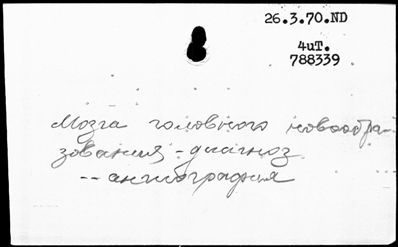 26.3.70.ND
4иT.
788339
Мозга головного новообра-
зования - диагноз
-- ангиография